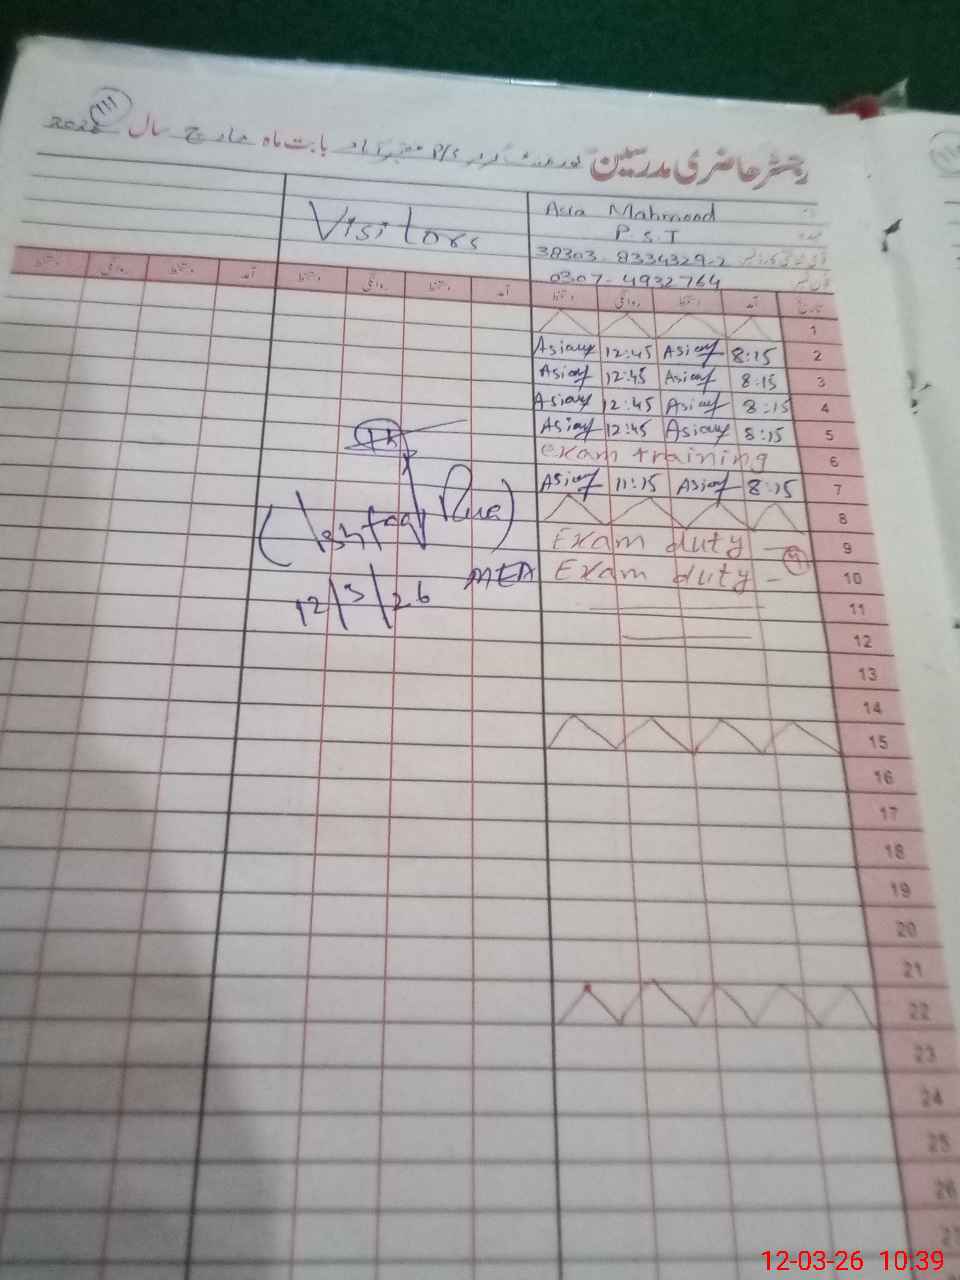 111
رجسٹر حاضری مدرسین P/S بابت ماہ مارچ سال 2026
Asia Mahmood
P.S.T
38303-8334329-2
0307-4932764
Visitors
تاریخ آمد دستخط روانگی دستخط آمد دستخط روانگی دستخط آمد دستخط روانگی دستخط
1
2 8:15 Asia 12:45 Asia
3 8:15 Asia 12:45 Asia
4 8:15 Asia 12:45 Asia
5 8:15 Asia 12:45 Asia
6 exam training
7 8:15 Asia 11:15 Asia
8
9 Exam duty
10 Exam duty
11
12
13
14
15
16
17
18
19
20
21
22
23
24
25
26
MEA
12/3/26
12-03-26 10:39